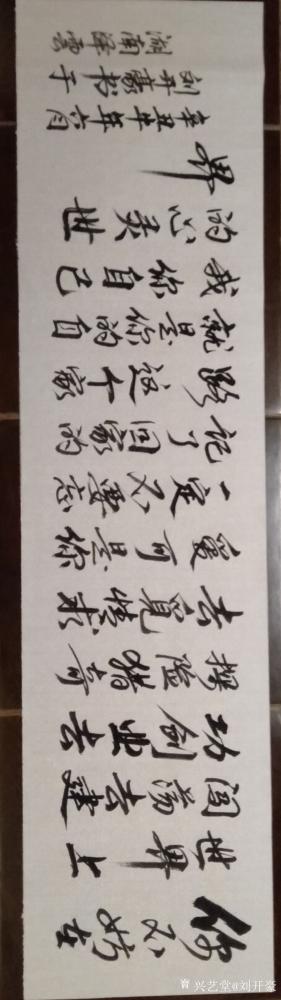 你不妨在
世界上
闯荡去建
功创业去
探险猎奇
去觅情求
爱可是你
一定不要忘
记了回家的
路这个家
就是你的自
我你自己
的心灵世
界
辛丑牛年六月
刘开豪书于
湖南
兴艺堂@刘开豪